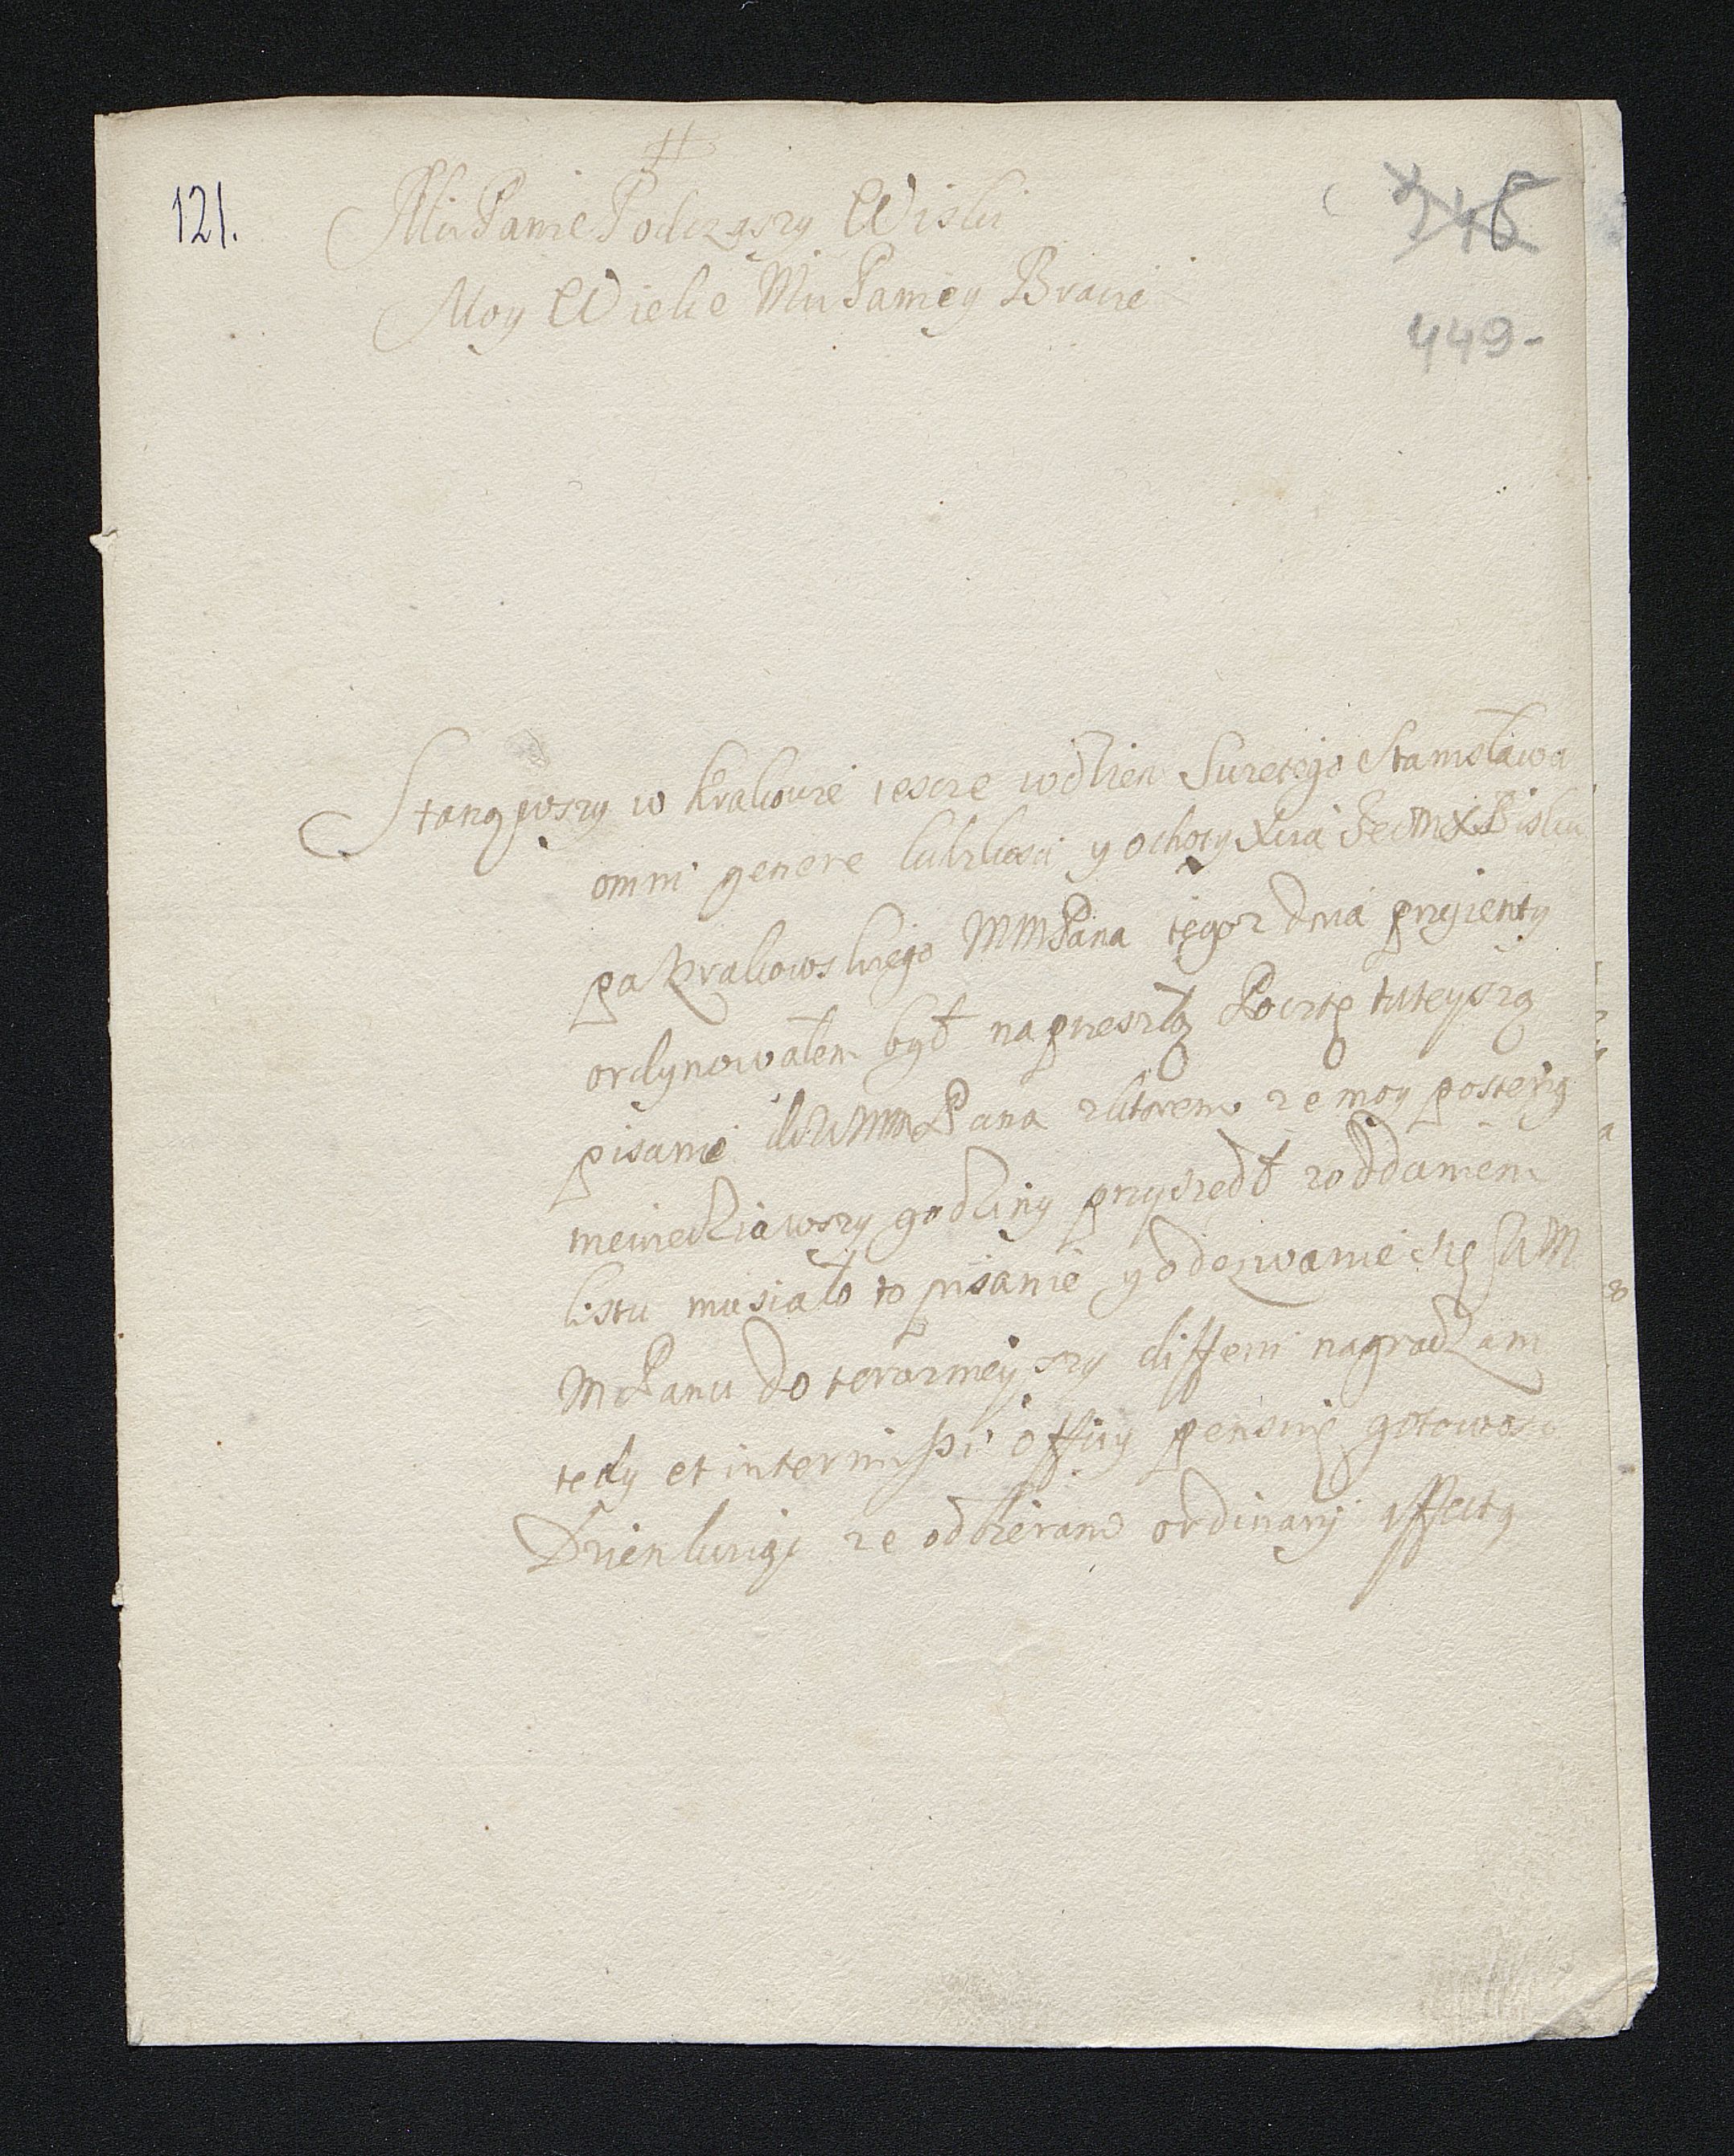 121.
Mci Panie Podczaszy Wiski
Moy Wielce Mci Panie y Bracie
449-
Stanąwszy w Krakowie iescze w dzien Swietego Stanisława
omni genere ludzkosci y ochoty Xcia Jeo Mci X Bisku
pa Krakowskiego MMPana tegoz dnia przyienty
ordynowałem był na przeszłą Pocztę tuteyszą
pisanie do WMMPana z ktorem ze moy posteriq
niewiedziawszy godziny przyszedł z oddaniem
listu musiało to pisanie y oderwanie się WM
MPanu do terazniejszy differri nagradzam
tedy et intermissi officy pensuię gotowosc
Dzienkuiąc ze odbieram ordinarÿ affectq